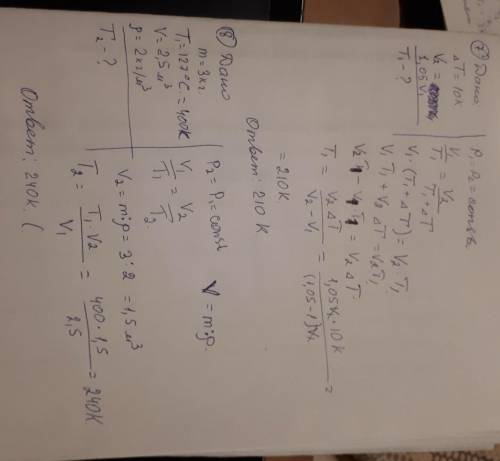 ⑦ Дано
ΔT = 10К
V₂ = 1,05V₁
T₁ - ?
P₁ = P₂ = const
V₁/T₁ = V₂/(T₁ + ΔT)
V₁ · (T₁ + ΔT) = V₂ · T₁
V₁ T₁ + V₂ ΔT = V₂ T₁
V₂ T₁ - V₁ T₁ = V₂ ΔT
T₁ = V₂ ΔT/(V₂ - V₁) = 1,05V₁ · 10К/((1,05-1)V₁) =
= 210К
Ответ: 210 К
⑧ Дано
m = 3кг
T₁ = 127°C = 400К
V = 2,5 м³
ρ = 2 кг/м³
T₂ - ?
P₂ = P₁ = const V = m:ρ
V₁/T₁ = V₂/T₂
V₂ = m:ρ = 3:2 = 1,5 м³
T₂ = T₁ · V₂/V₁ = 400 · 1,5/2,5 = 240К
Ответ: 240К.